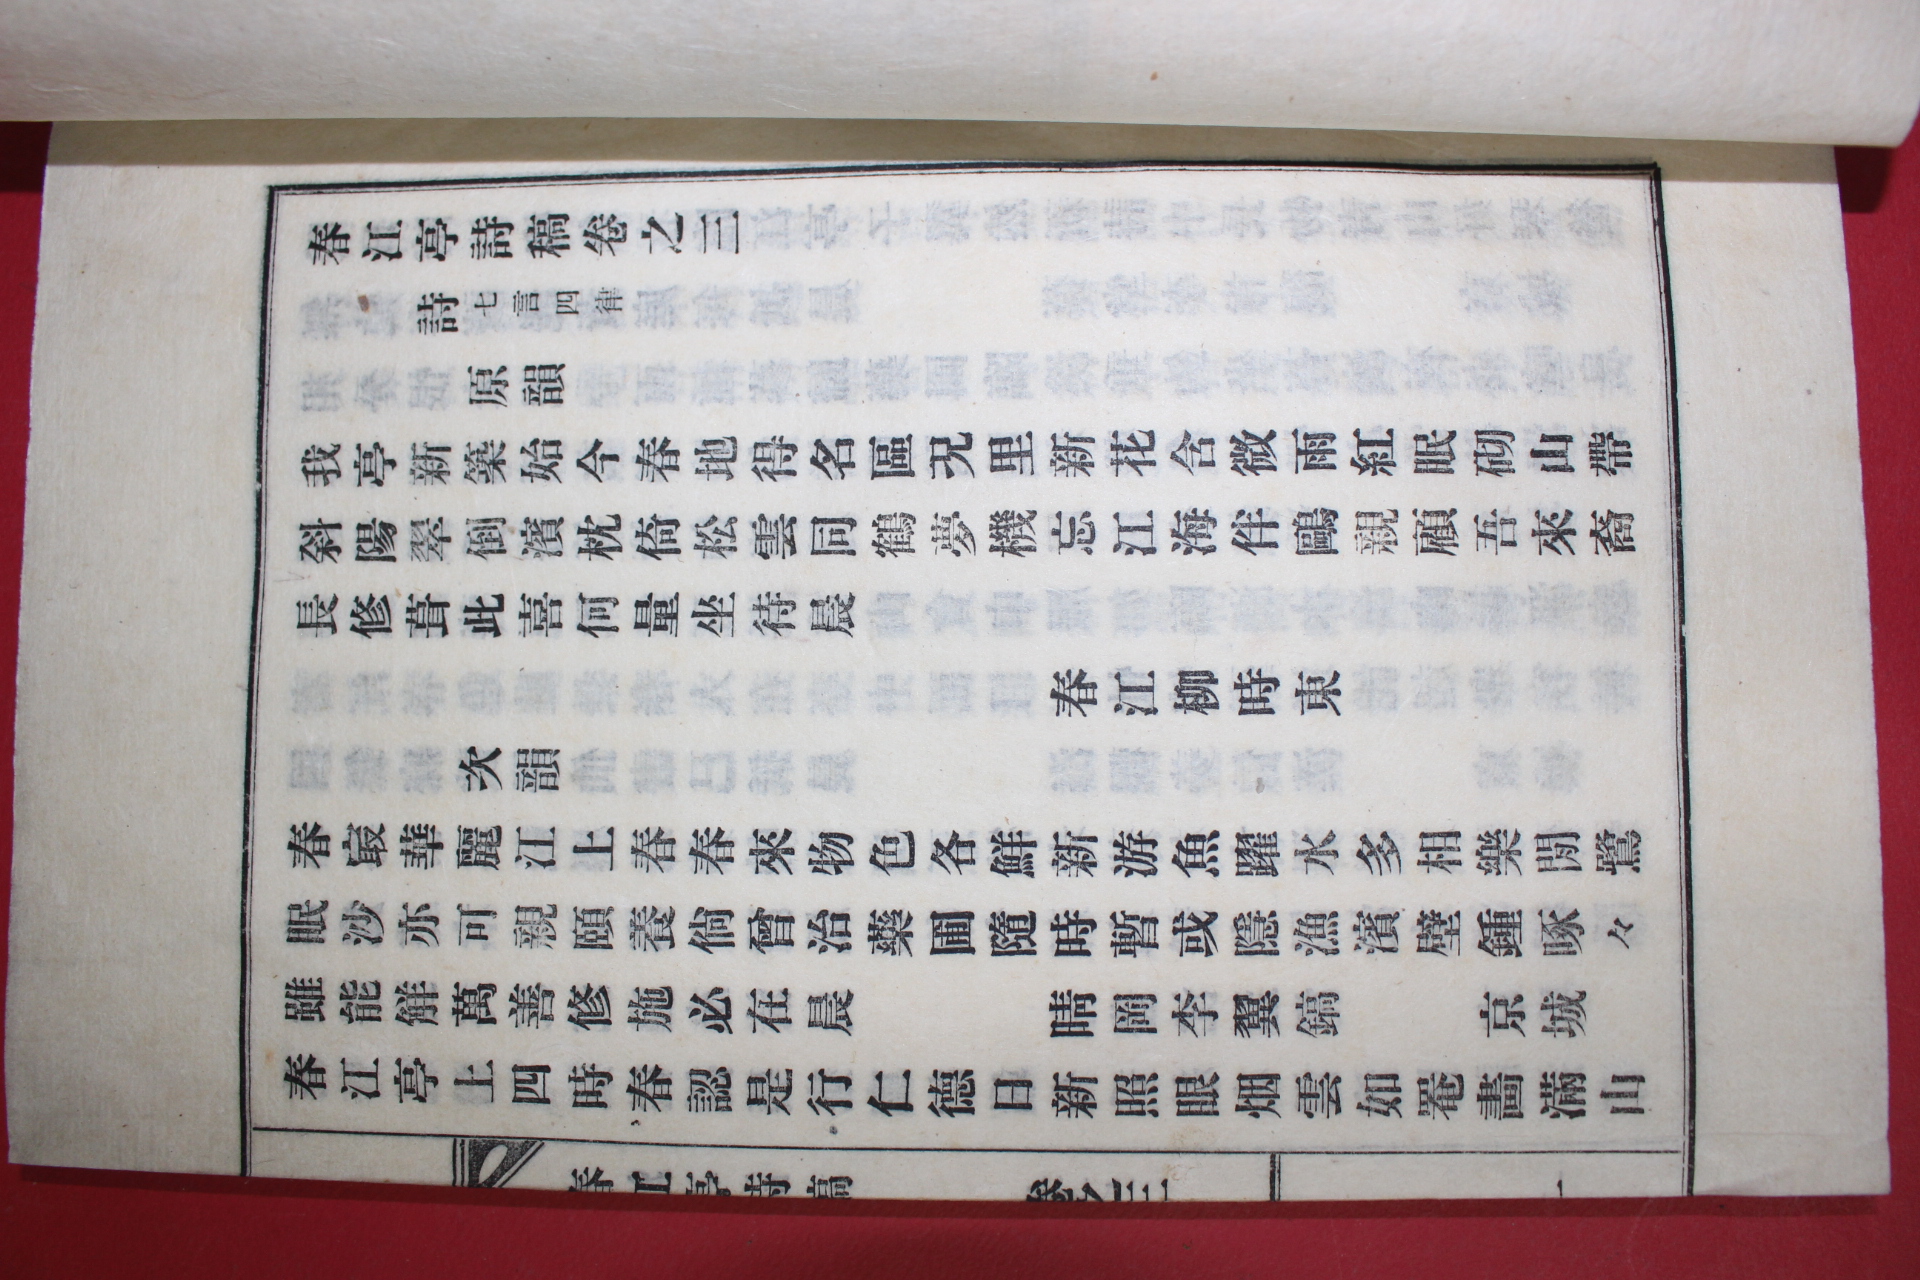 春江亭詩稿卷之三
詩 七言四律
原韻
我亭新築始今春地得名區况里新花含微雨紅眠砌山帶
斜陽翠倒濱枕倚松雲同鶴夢機忘江海伴鷗親願吾來裔
長修葺此喜何量坐待晨
春江柳時東
次韻
春冣華麗江上春春來物色各鮮新游魚躍水多相樂閒鷺
眠沙亦可親頤養倘曾治藥圃隨時暫或隱漁濱壁鍾啄々
雖能觧萬善修施必在晨 晴岡李翼鎬 京城
春江亭上四時春認是行仁德日新照眼烟雲如罨畵滿山
春江亭詩稿 卷之三 一